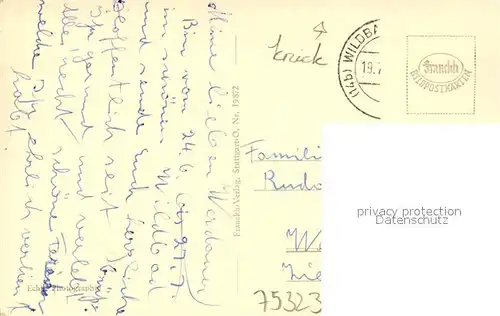 Meine lieben Wadaner
Bin vom 24.6. bis 27.7.
im schönen Wildbad
und sende euch herzliche
Grüße
Hoffentlich seit
Ihr gesund und verlebt
alle recht schöne Ferien
welche Ihr ehrlich verdient
habt
Echte Photographie
Franckh-Verlag, Stuttgart-O. Nr. 19872
knick
(14b) WILDBA
19.7
Franckh
BILDPOSTKARTEN
Famili
Rudo
W
75323
privacy protection
Datenschutz